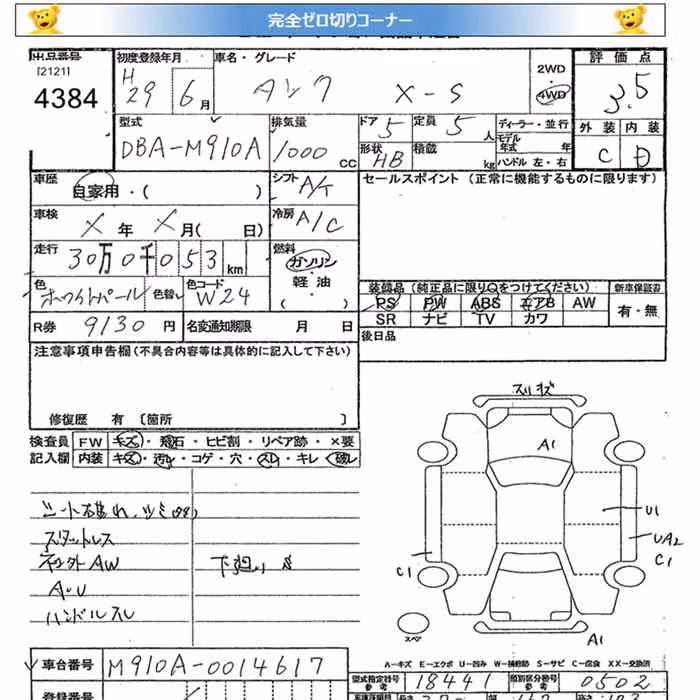 完全ゼロ切りコーナー
出品番号 初度登録年月 車名・グレード 2WD 評価点
[2121] H 29 6月 X-S 4WD 3.5
4384 外装 内装
型式 排気量 ドア 5 定員 5人 ディーラー・並行
DBA-M910A 1000 CC 形状 HB 積載 kg モデル年式 年 C D
ハンドル 左・右
車歴 自家用・( ) シフト A/T セールスポイント (正常に機能するものに限ります)
車検 X年 X月( 日) 冷房 A/C
走行 30万0千053km 燃料 ガソリン
軽油
( )
色 ホワイトパール 色替 色コード W24 装備品 (純正品に限り○をつけてください) 新車保証書
PS PW ABS エアB AW 有・無
SR ナビ TV カワ
R券 9130円 名変通知期限 月 日 後日品
注意事項申告欄 (不具合内容等は具体的に記入して下さい)
修復歴 有 〔箇所 〕
検査員 FW キズ・飛石・ヒビ割・リペア跡・×要
記入欄 内装 キズ・汚レ・コゲ・穴・スレ・キレ・破レ
スリキズ
A1
スタットレス
AW
ハンドルスレ
下廻り S
U1
UA2
C1
C1
スペア
A1
A-キズ E-エクボ U-凹み W-補修跡 S-サビ C-腐食 XX-交換済
車台番号 M910A-0014617 型式指定番号 参考 18441 類別区分番号 参考 0502
登録番号